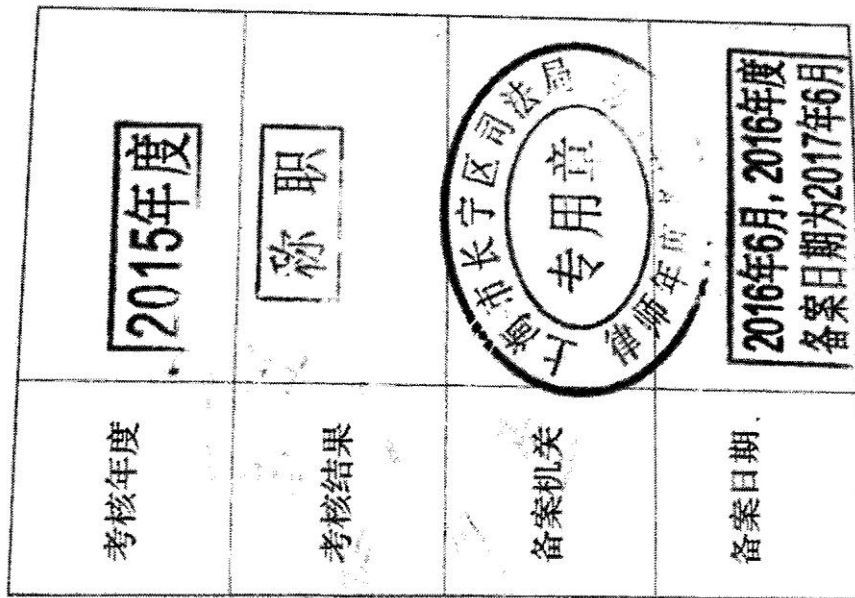 考核年度
2015年度
考核结果
称职
备案机关
上海市长宁区司法局
专用章
律师年
备案日期
2016年6月,2016年度
备案日期为2017年6月